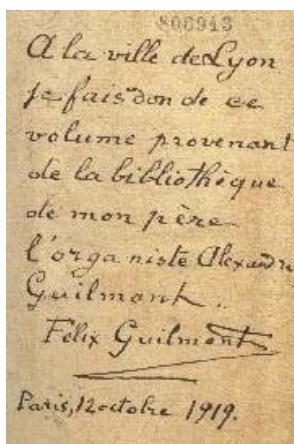 806913
A la ville de Lyon
je fais don de ce
volume provenant
de la bibliothèque
de mon père
l'organiste Alexandre
Guilmant.
Félix Guilmant
Paris, 12 octobre 1919.